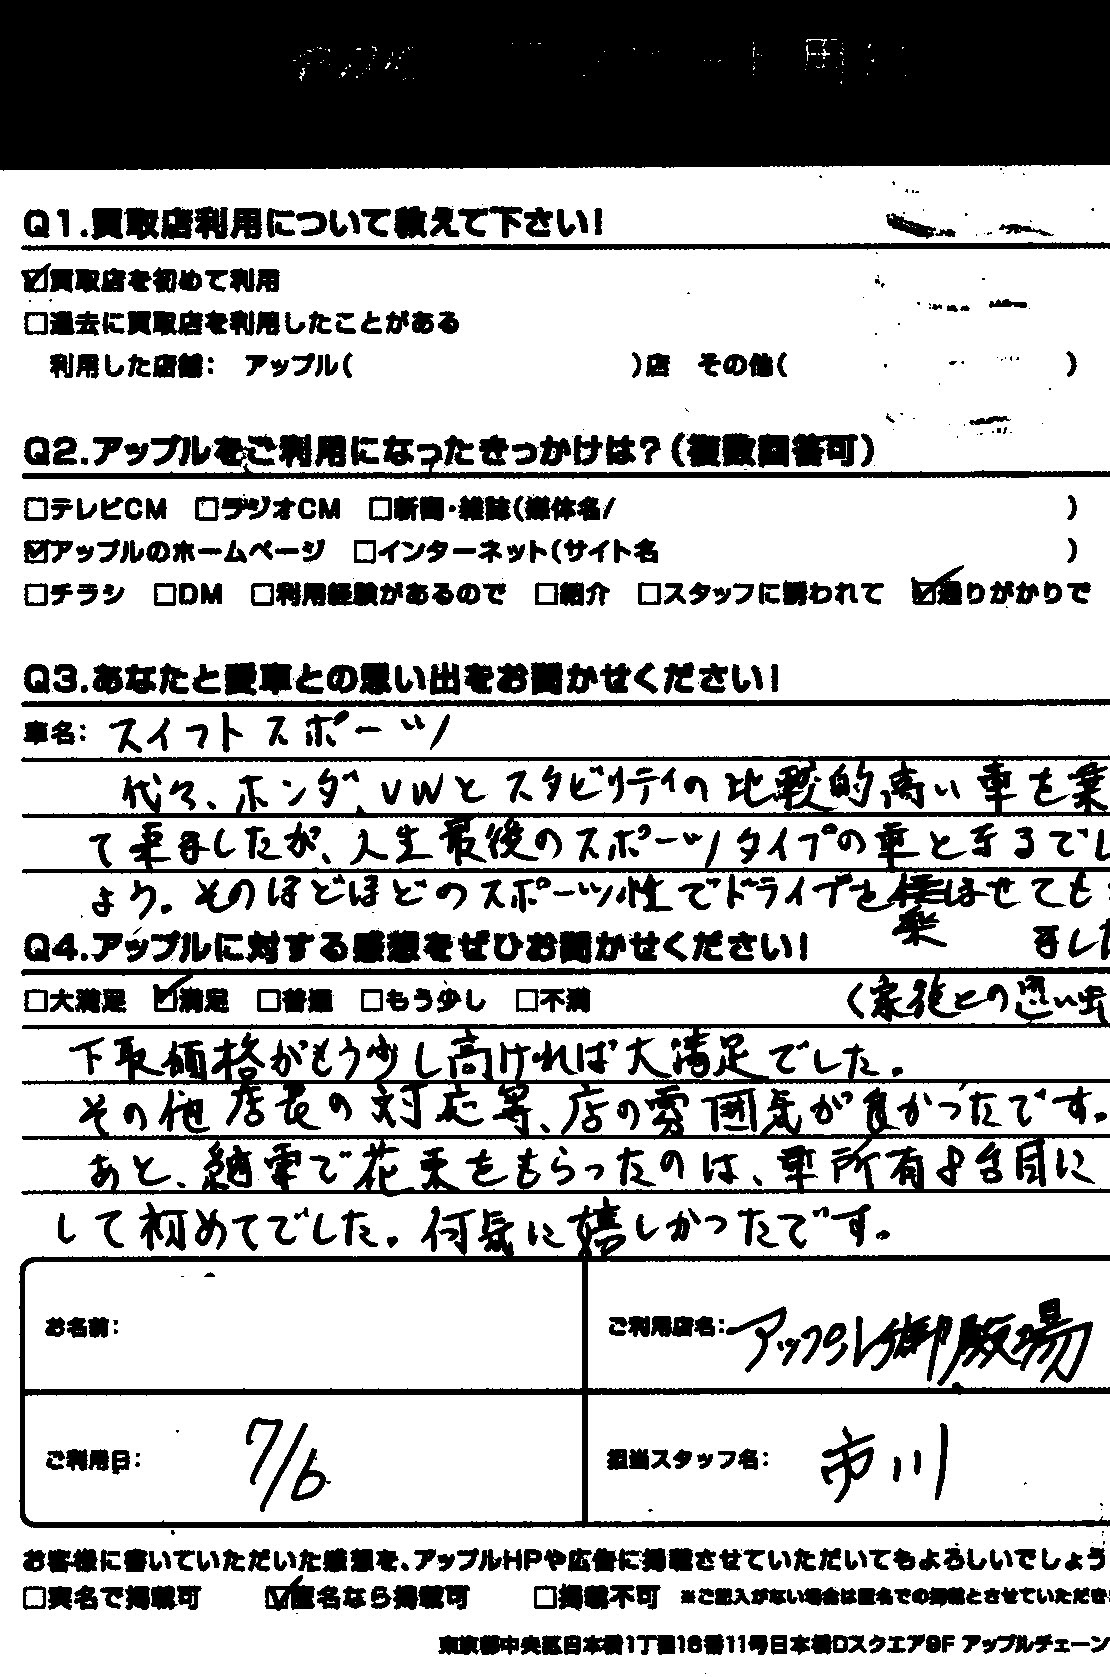 Q1.買取店利用について教えて下さい!
☑買取店を初めて利用
□過去に買取店を利用したことがある
利用した店舗: アップル( )店 その他( )
Q2.アップルをご利用になったきっかけは?(複数回答可)
□テレビCM □ラジオCM □新聞・雑誌(媒体名/ )
☑アップルのホームページ □インターネット(サイト名 )
□チラシ □DM □利用経験があるので □紹介 □スタッフに誘われて ☑通りがかりで
Q3.あなたと愛車との思い出をお聞かせください!
車名: スイフトスポーツ
代々、ホンダ、VWとスタビリティの比較的高い車を
て来ましたが、人生最後のスポーツタイプの車となるでし
ょう。そのほどほどのスポーツ性でドライブを楽ませても
ました
Q4.アップルに対する感想をぜひお聞かせください!
□大満足 ☑満足 □普通 □もう少し □不満
(家族との思い出
下取価格がもう少し高ければ大満足でした。
その他店長の対応等、店の雰囲気が良かったです。
あと、納車で花束をもらったのは、車所有8台目に
して初めてでした。何気に嬉しかったです。
お名前:
ご利用店名: アップル御殿場
ご利用日: 7/6
担当スタッフ名: 市川
お客様に書いていただいた感想を、アップルHPや広告に掲載させていただいてもよろしいでしょう
□実名で掲載可 ☑匿名なら掲載可 □掲載不可 ※ご記入がない場合は匿名での掲載とさせていただき
東京都中央区日本橋1丁目16番11号日本橋Dスクエア9F アップルチェーン